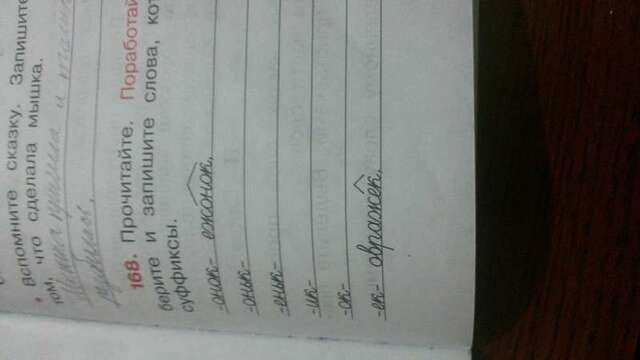 Вспомните сказку. Запишите
том, что сделала мышка.
Мышка пришла и
168. Прочитайте. Поработай
берите и запишите слова, кот
суффиксы.
-онок- ежонок,
-оньк-
-еньк-
-ик-
-ок-
-ек- овражек,